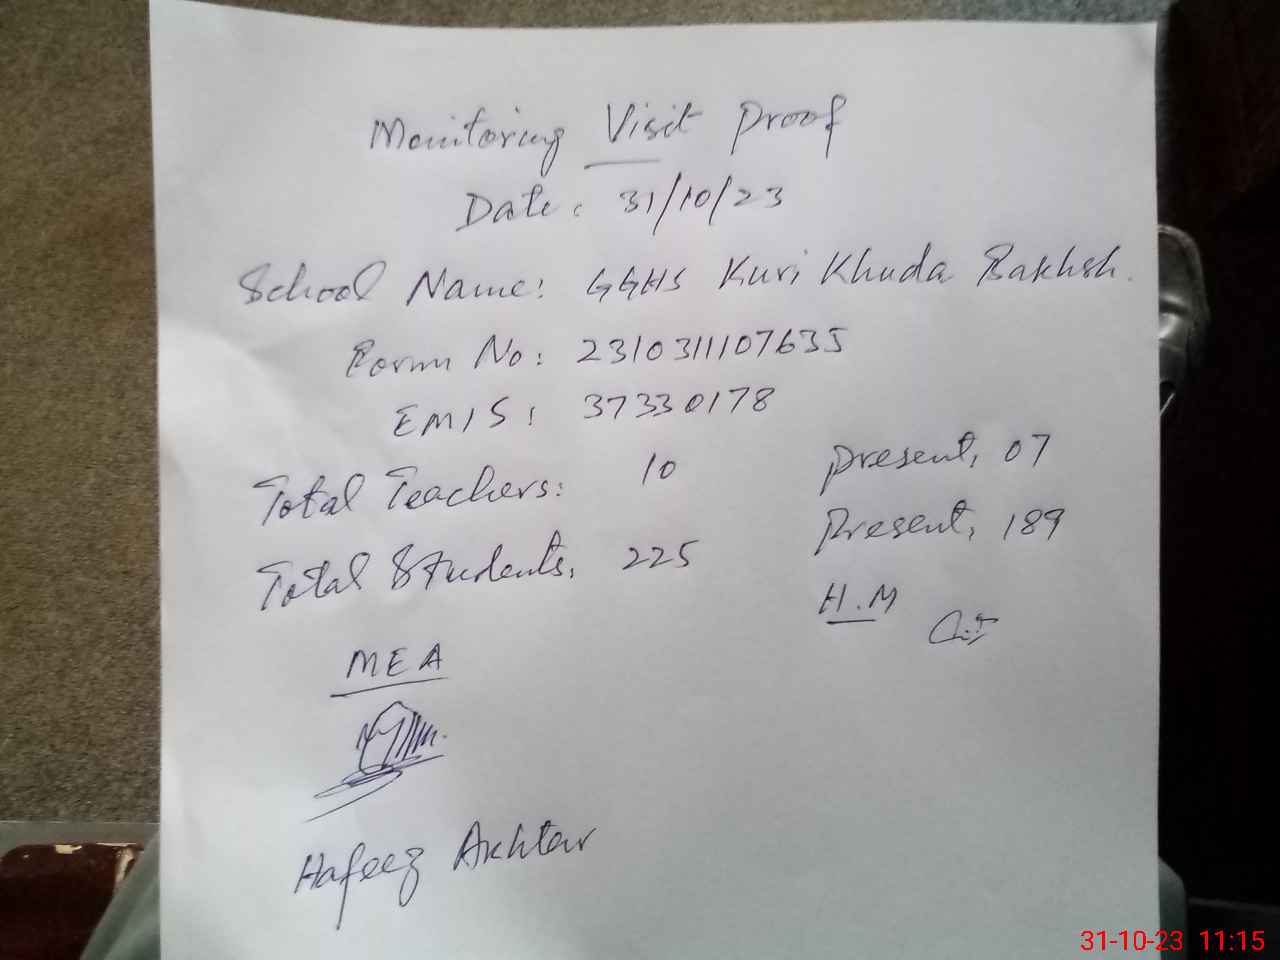 Monitoring Visit Proof
Date: 31/10/23
School Name: GGHS Kuri Khuda Bakhsh.
Form No: 2310311107635
EMIS: 37330178
Total Teachers: 10 Present, 07
Total Students, 225 Present, 189
H.M
MEA
Hafeez Akhtar
31-10-23 11:15